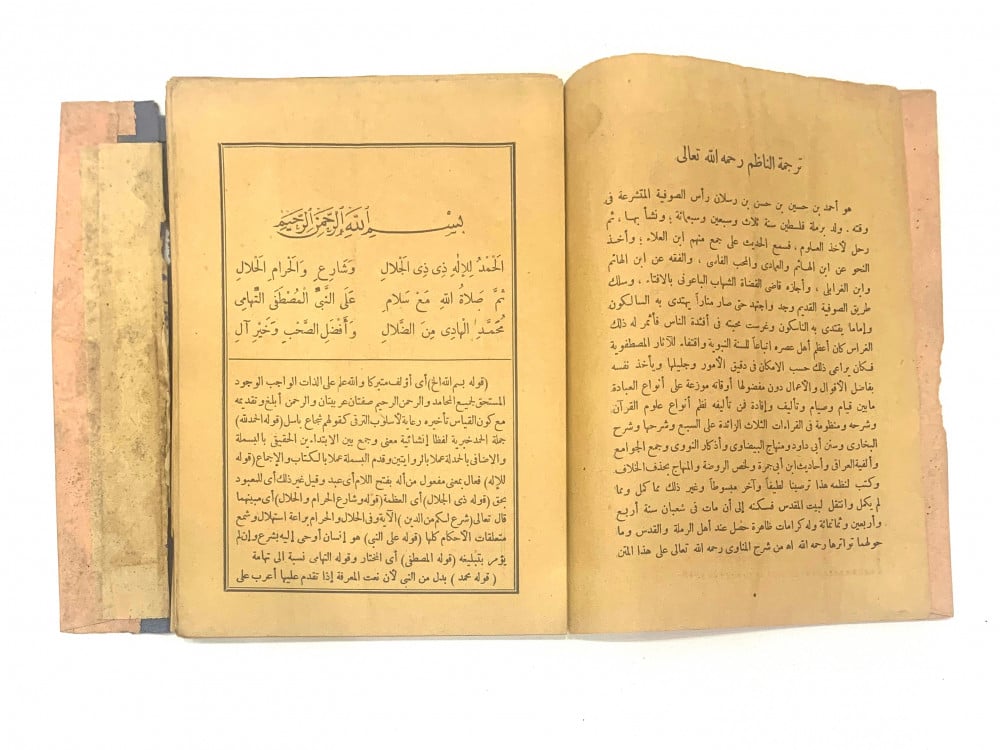 ترجمة الناظم رحمه الله تعالى
هو أحمد بن حسين بن حسن بن رسلان رأس الصوفية المتشرعة فى
وقته . ولد برملة فلسطين سنة ثلاث وسبعين وسبعمائة ؛ ونشأ بها ، ثم
رحل لأخذ العلوم ، فسمع الحديث على جمع منهم ابن العلاء ؛ وأخذ
النحو عن ابن الهائم والعمادى والمحب الفاسى ، والفقه عن ابن الهائم
وابن الغرابلى ، وأجازه قاضى القضاة الشهاب الباعونى بالافتاء ، وسلك
طريق الصوفية القديم وجد واجتهد حتى صار مناراً يهتدى به السالكون
وإماما يقتدى به الناسكون وغرست محبته فى أفئدة الناس فأثمر له ذلك
الغراس كان أعظم أهل عصره اتباعاً للسنة النبوية واقتفاء للآثار المصطفوية
فكان يراعى ذلك حسب الامكان فى دقيق الأمور وجليلها ويأخذ نفسه
بفاضل الأقوال والأعمال دون مفضولها أوقاته موزعة على أنواع العبادة
مابين قيام وصيام وتأليف وإفادة فمن تآليفه نظم أنواع علوم القرآن
وشرحه ومنظومة فى القراءات الثلاث الزائدة على السبع وشرحها وشرح
البخارى وسنن أبى داود ومنهاج البيضاوى وأذكار النووى وجمع الجوامع
وألفية العراقى وأحاديث ابن أبى جمرة ولخص الروضة والمنهاج بحذف الخلاف
وكتب لنظمه هذا توضيحا لطيفاً وآخر مبسوطاً وغير ذلك مما كمل ومما
لم يكمل وانتقل لبيت المقدس فسكنه إلى أن مات فى شعبان سنة أربع
وأربعين وثمانمائة وله كرامات ظاهرة حصل عند أهل الرملة والقدس وما
حولهما تواترها رحمه الله اه من شرح المناوى رحمه الله تعالى على هذا المتن
بِسْمِ اللهِ الرَّحْمَنِ الرَّحِيمِ
الْحَمْدُ لِلْإِلٰهِ ذِى الْجَلَالِ وَشَارِعِ الْحَرَامِ وَالْحَلَالِ
ثُمَّ صَلَاةُ اللهِ مَعْ سَلَامِ عَلَى النَّبِىِّ الْمُصْطَفَى التِّهَامِى
مُحَمَّدِ الْهَادِى مِنَ الضَّلَالِ وَأَفْضَلِ الصَّحْبِ وَخَيْرِ آلِ
(قوله بسم الله الخ) أى أؤلف متبركا والله علم على الذات الواجب الوجود
المستحق لجميع المحامد والرحمن الرحيم صفتان عربيتان والرحمن أبلغ وتقديمه
مع كون القياس تأخيره رعاية لأسلوب الترقى كقولهم شجاع باسل (قوله الحمد لله)
جملة الحمد خبرية لفظا إنشائية معنى وجمع بين الابتداءين الحقيقى بالبسملة
والاضافى بالحمدلة عملا بالروايتين وقدم البسملة عملا بالكتاب والإجماع (قوله
للإله) فعال بمعنى مفعول من أله بفتح اللام أى عبد وقيل غير ذلك أى للمعبود
بحق (قوله ذى الجلال) أى العظمة (قوله وشارع الحرام والحلال) أى مبينهما
قال تعالى (شرع لكم من الدين) الآية وفى الحلال والحرام براعة استهلال وشمع
متعلقات الأحكام كلها (قوله على النبى) هو إنسان أوحى إليه بشرع وإن لم
يؤمر بتبليغه (قوله المصطفى) أى المختار وقوله التهامى نسبة الى تهامة
(قوله محمد) بدل من النبى لأن نعت المعرفة إذا تقدم عليها أعرب على